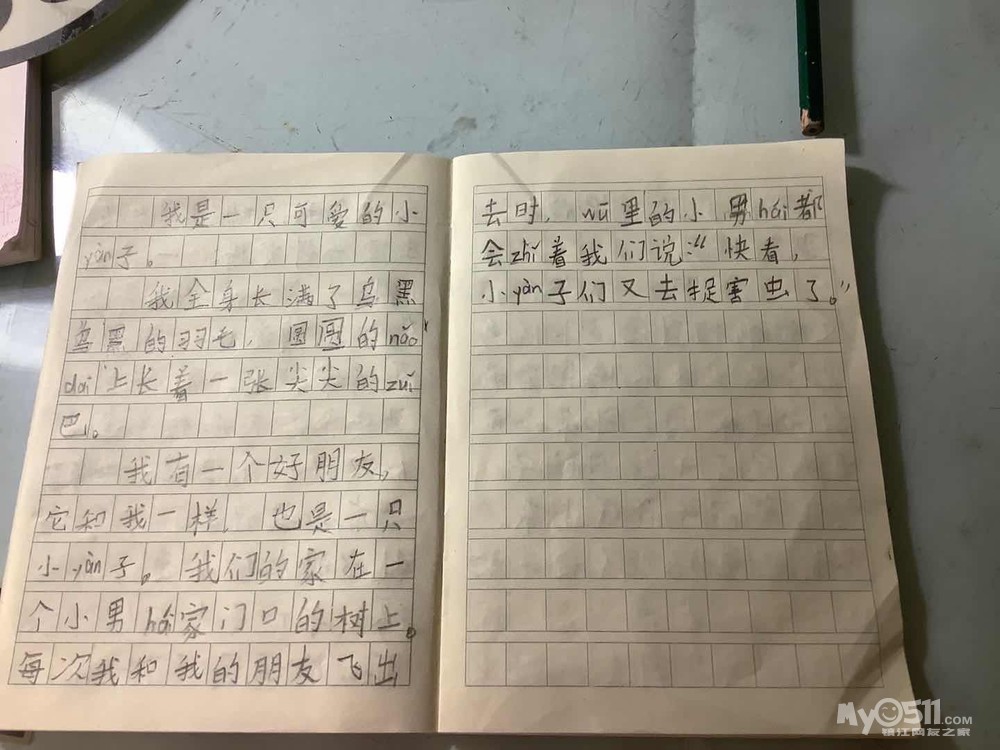 我是一只可爱的小
yàn子。
我全身长满了乌黑
乌黑的羽毛，圆圆的nǎo
dai上长着一张尖尖的zuǐ
巴。
我有一个好朋友，
它和我一样，也是一只
小yàn子。我们的家在一
个小男hái家门口的树上。
每次我和我的朋友飞出
去时，wū里的小男hái都
会zhǐ着我们说：“快看，
小yàn子们又去捉害虫了。”
My0511.COM
镇江网友之家